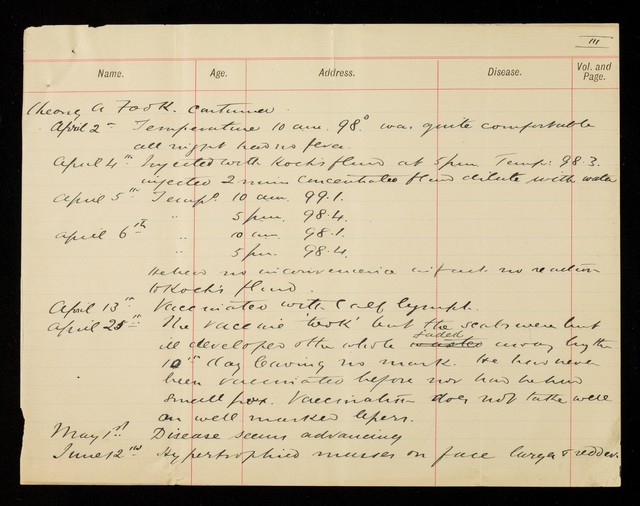 III
Name. Age. Address. Disease. Vol. and Page.
Cheong A Fook. continued.
April 2nd Temperature 10 am. 98° was quite comfortable
all night had no fever.
April 4th Injected with Koch's fluid at 5 pm Temp: 98.3.
injected 2 min concentrated fluid dilute with water
April 5th Temp. 10 am. 99.1.
" 5 pm. 98.4.
April 6th " 10 am. 98.1.
" 5 pm. 98.4.
He had no inconvenience in fact no reaction
to Koch's fluid.
April 13th Vaccinated with Calf lymph.
April 25th The vaccine 'took' but the scabs were but
ill developed & the whole wasted faded away by the
10th day leaving no mark. He had never
been vaccinated before nor had he had
small pox. Vaccination does not take well
on well marked lepers.
May 1st Disease seems advancing
June 12nd Hypertrophied masses on face larger & redder.